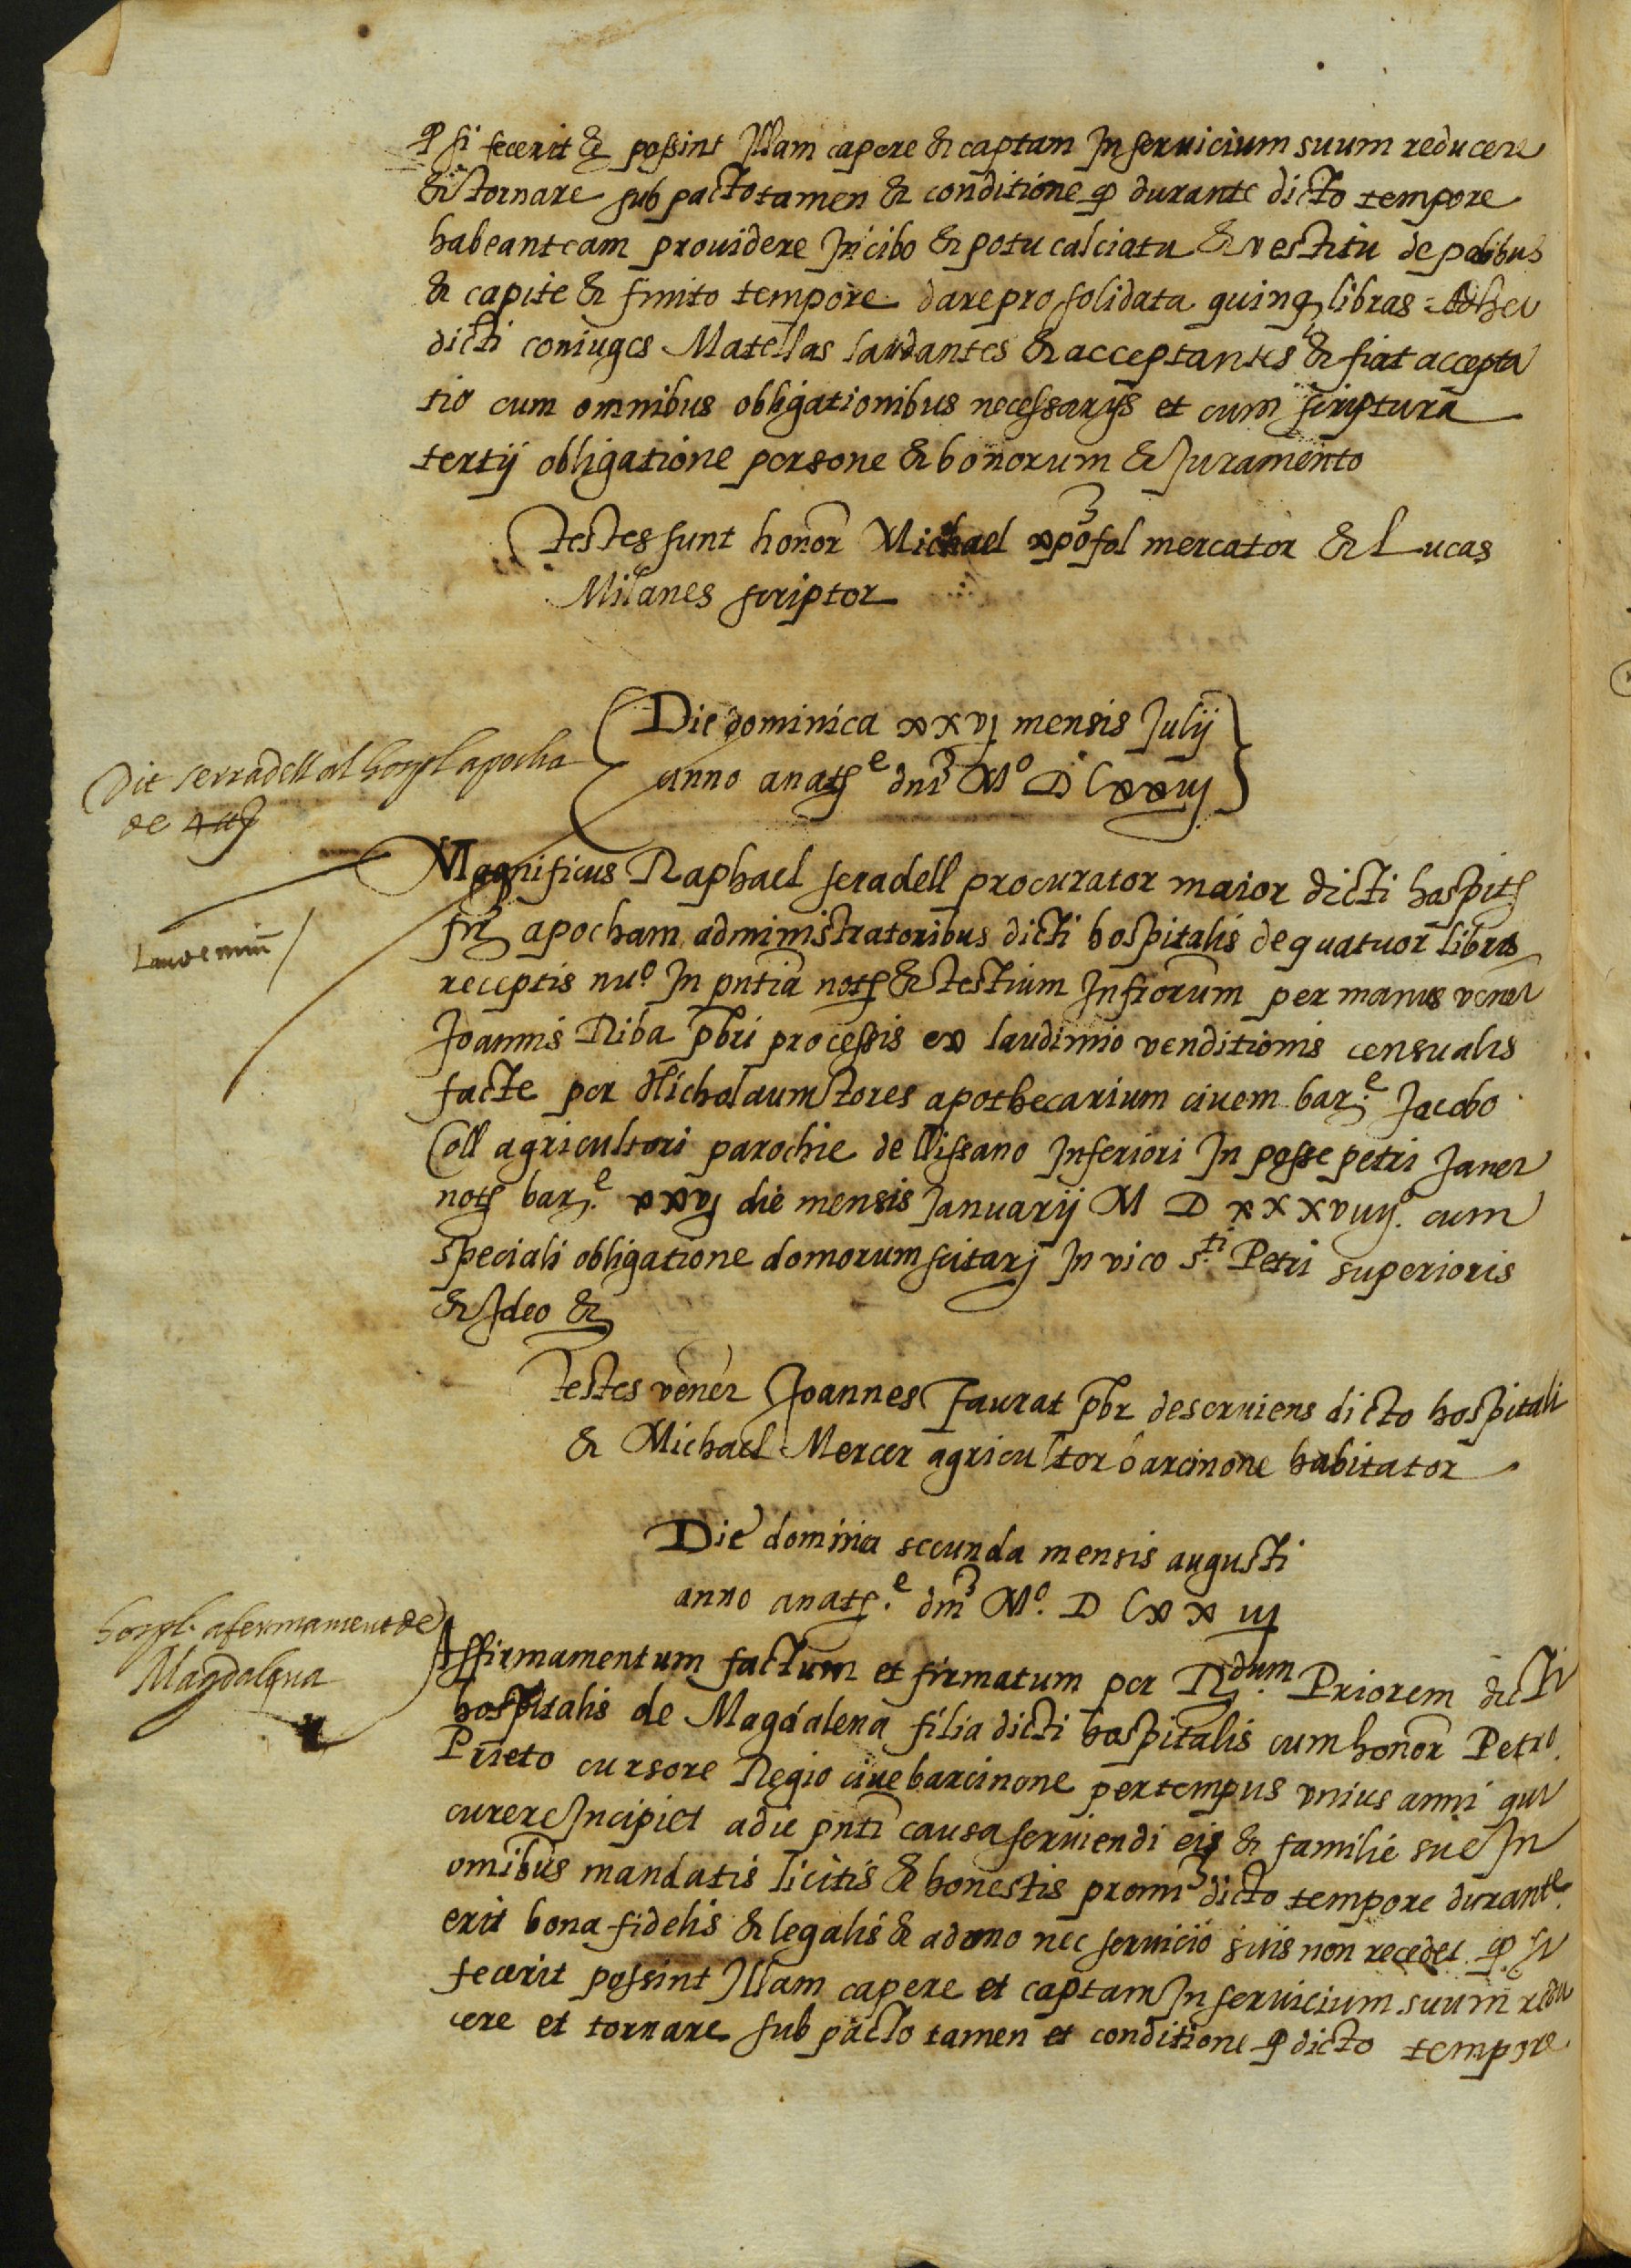 q̄ si fecerit &c possint Illam capere & captam In seruicium suum reducere
& tornare sub pacto tamen & conditione q̄ durante dicto tempore
habeant eam prouidere In cibo & potu calciatu & vestitu de pedibus
& capite & finito tempore dare pro solidata quinq libras Ad hec
dicti coniuges Matellas laudantes & acceptantes & fiat accepta
tio cum omnibus obligationibus necessarijs et cum scriptura
tertij obligatione persone & bonorum & Juramento
Testes sunt honor Michael xpofol mercator & Lucas
Milanes scriptor
Die dominica xxvj mensis Julij
anno a nat.e dni Mo D Lxxiij
Dit serradell al hospl apocha
de 4 ll
Magnificus Raphael seradell procurator maior dicti hospit
fir apocham administratoribus dicti hospitalis de quatuor libris
Laudemiu
receptis nuo In pntia not & testium Infrorum per manus vener
Joannis Riba pbri processis ex laudimio venditionis censualis
facte per Nicholaum Tores apothecarium ciuem bar.e Jacobo
Coll agricultori parochie de llissano Inferiori In posse petri Janer
not bar.e xxvj die mensis Januarij M D xxxviiij. cum
speciali obligatione domorum scitar In vico s.ti Petri superioris
& Ideo &c
Testes vener Joannes Faurat pbr deseruiens dicto hospitali
& Michael Mercer agricultor barcinone habitator
Die dominica secunda mensis augusti
anno a nat.e dni Mo. D Lxxiij
hospl. afermament de
Magdalena
Affirmamentum factum et firmatum per R.dum Priorem dicti
hospitalis de Magdalena filia dicti hospitalis cum honor Petro
Prieto cursore Regio ciue barcinone per tempus vnius anni qui
curere Incipiet a die pnti causa seruiendi eis & familie sue In
omibus mandatis licitis & honestis promi dicto tempore durante
erit bona fidelis & legalis & a domo nec seruicio suis non recedet q̄ si
fecerit possint Illam capere et captam In seruicium suum redu
cere et tornare sub pacto tamen et conditione q̄ dicto tempore